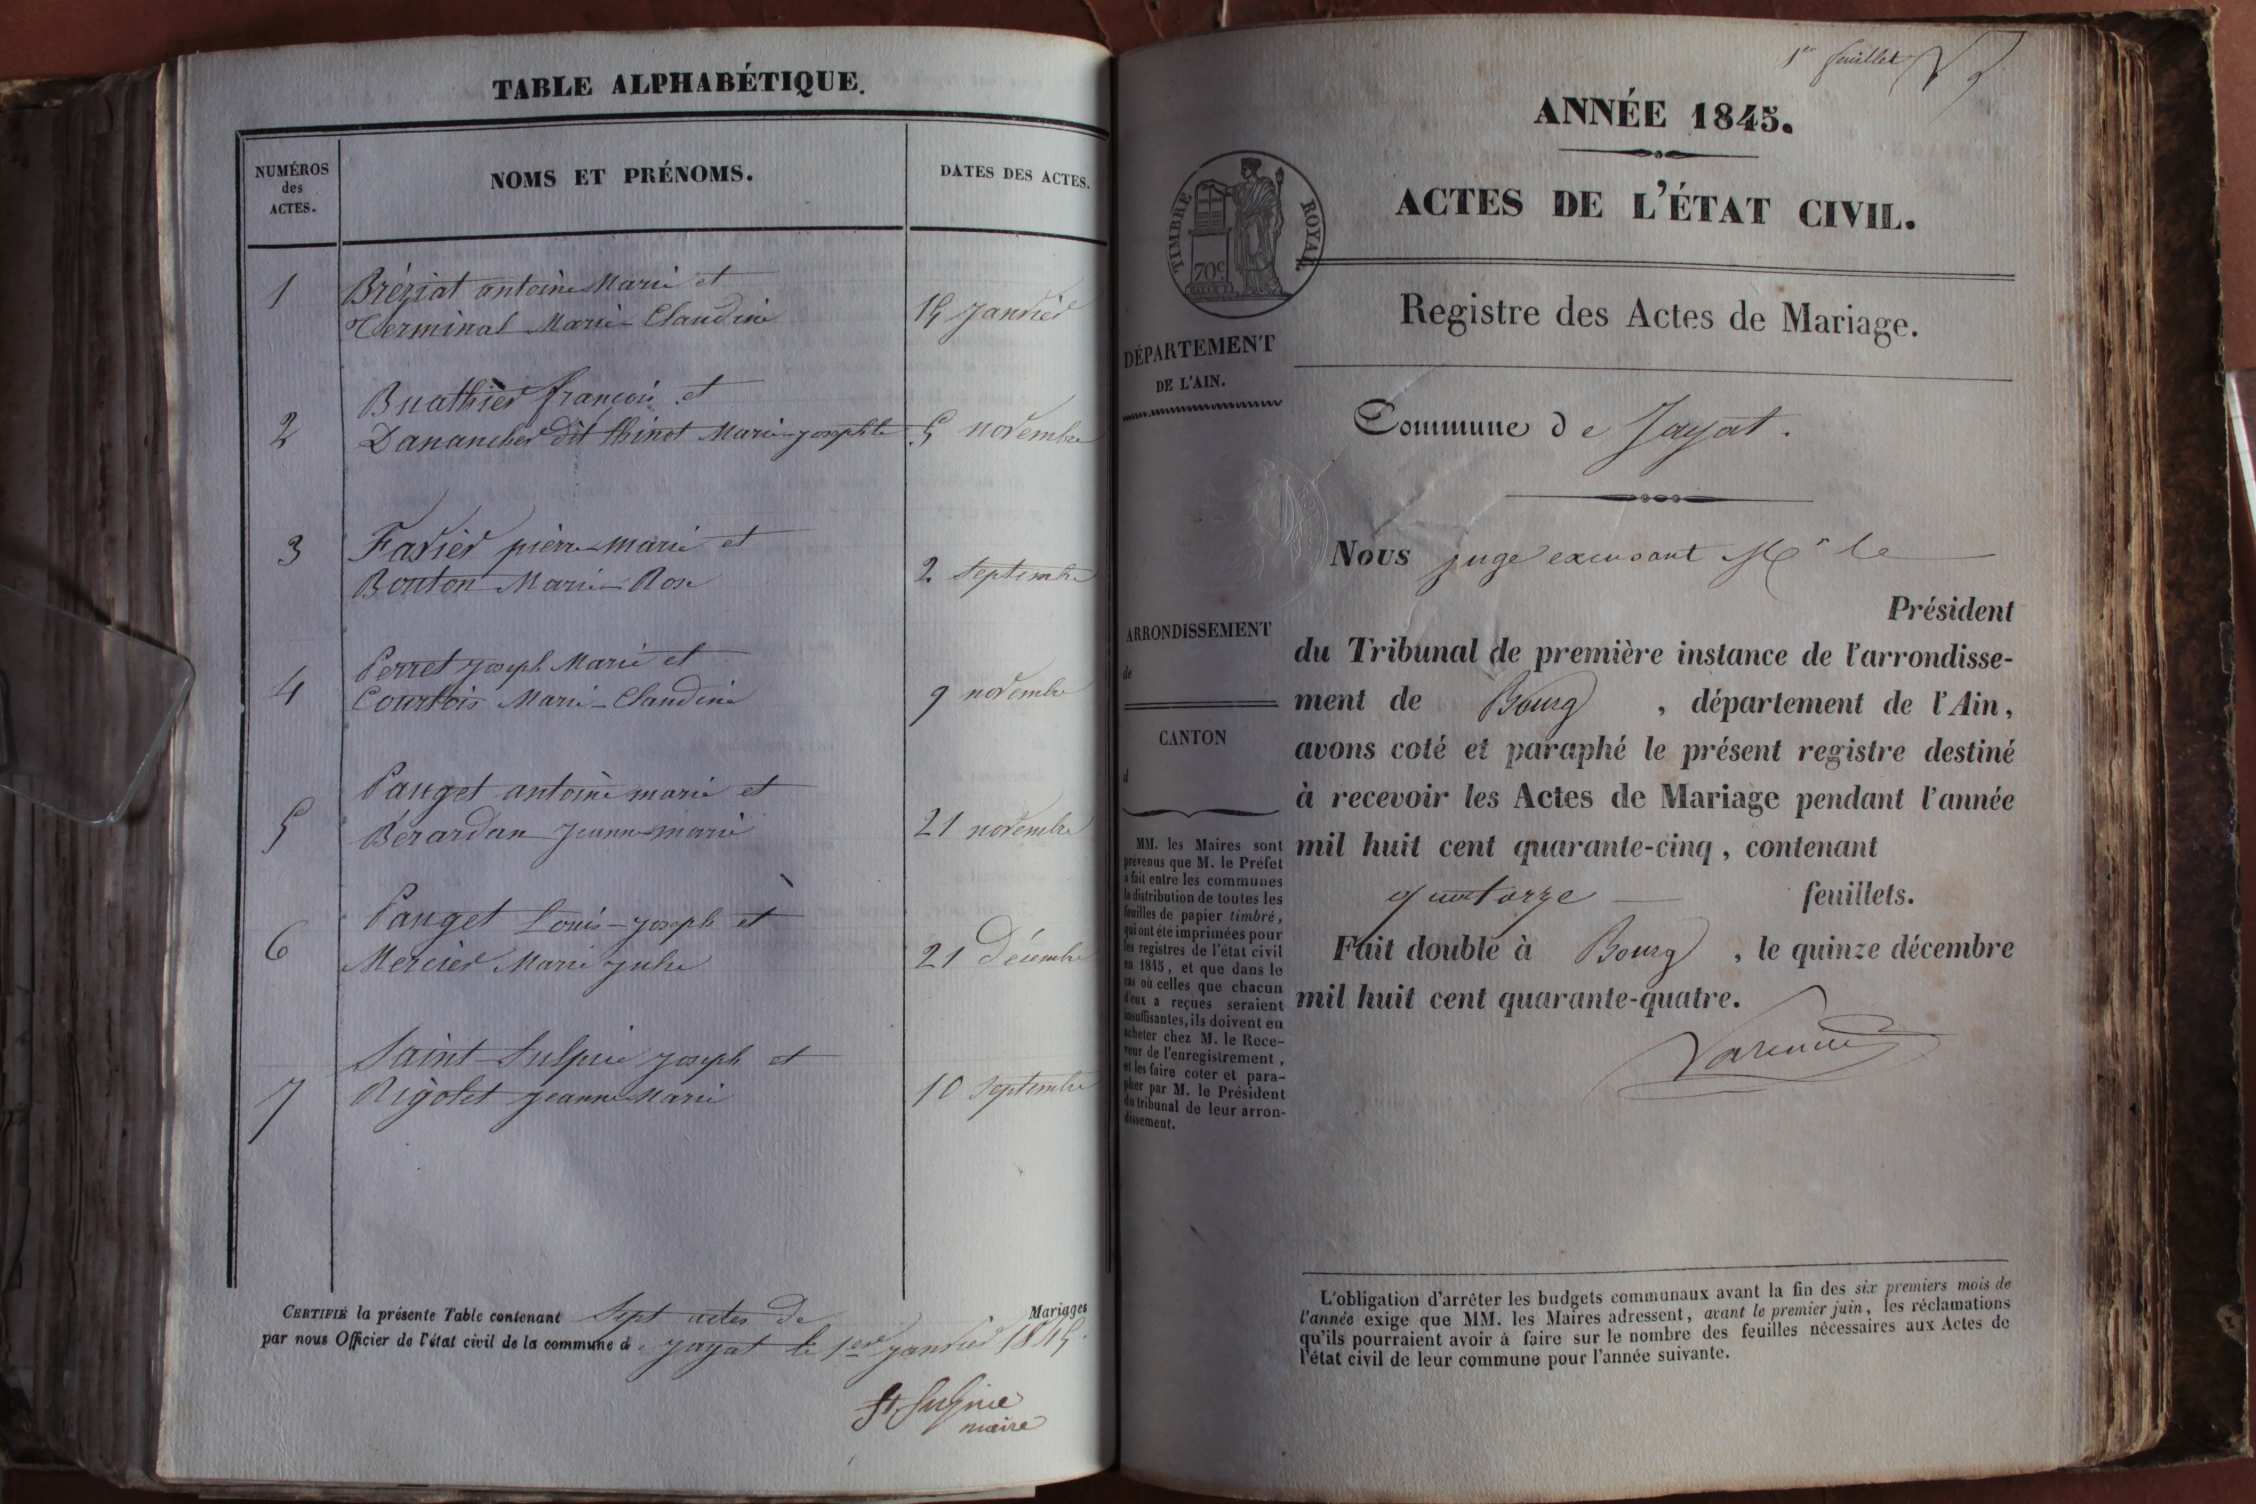 TABLE ALPHABÉTIQUE.
NUMÉROS
des
ACTES.
NOMS ET PRÉNOMS.
DATES DES ACTES.
1
Bréziat antoine Marie et
Terminal Marie Claudine
15 janvier
2
Buathier françois et
Danancher dit thinot Marie josephte
5 novembre
3
Favier pierre marie et
Bouton Marie Rose
2 septembre
4
Perret joseph Marie et
Courtois Marie Claudine
9 novembre
5
Pauget antoine marie et
Bérardan jeanne marie
21 novembre
6
Pauget Louis joseph et
Mercier Marie julie
21 Décembre
7
Saint Sulpice joseph et
Rigolet jeanne Marie
10 septembre
CERTIFIÉ la présente Table contenant sept actes de Mariages
par nous Officier de l'état civil de la commune d e jayat le 1er janvier 1845.
St Sulpice
maire
1er feuillet
ANNÉE 1845.
ACTES DE L'ÉTAT CIVIL.
TIMBRE ROYAL
70c
Registre des Actes de Mariage.
DÉPARTEMENT
DE L'AIN.
Commune d e Jayat.
Nous juge excusant Mr le
Président
du Tribunal de première instance de l'arrondisse-
ment de Bourg, département de l'Ain,
avons coté et paraphé le présent registre destiné
à recevoir les Actes de Mariage pendant l'année
mil huit cent quarante-cinq, contenant
quatorze feuillets.
Fait double à Bourg, le quinze décembre
mil huit cent quarante-quatre.
ARRONDISSEMENT
de
CANTON
d
MM. les Maires sont
prévenus que M. le Préfet
a fait entre les communes
la distribution de toutes les
feuilles de papier timbré,
qui ont été imprimées pour
les registres de l'état civil
en 1845, et que dans le
cas où celles que chacun
d'eux a reçues seraient
insuffisantes, ils doivent en
acheter chez M. le Rece-
veur de l'enregistrement,
et les faire coter et para-
pher par M. le Président
du tribunal de leur arron-
dissement.
L'obligation d'arrêter les budgets communaux avant la fin des six premiers mois de
l'année exige que MM. les Maires adressent, avant le premier juin, les réclamations
qu'ils pourraient avoir à faire sur le nombre des feuilles nécessaires aux Actes de
l'état civil de leur commune pour l'année suivante.